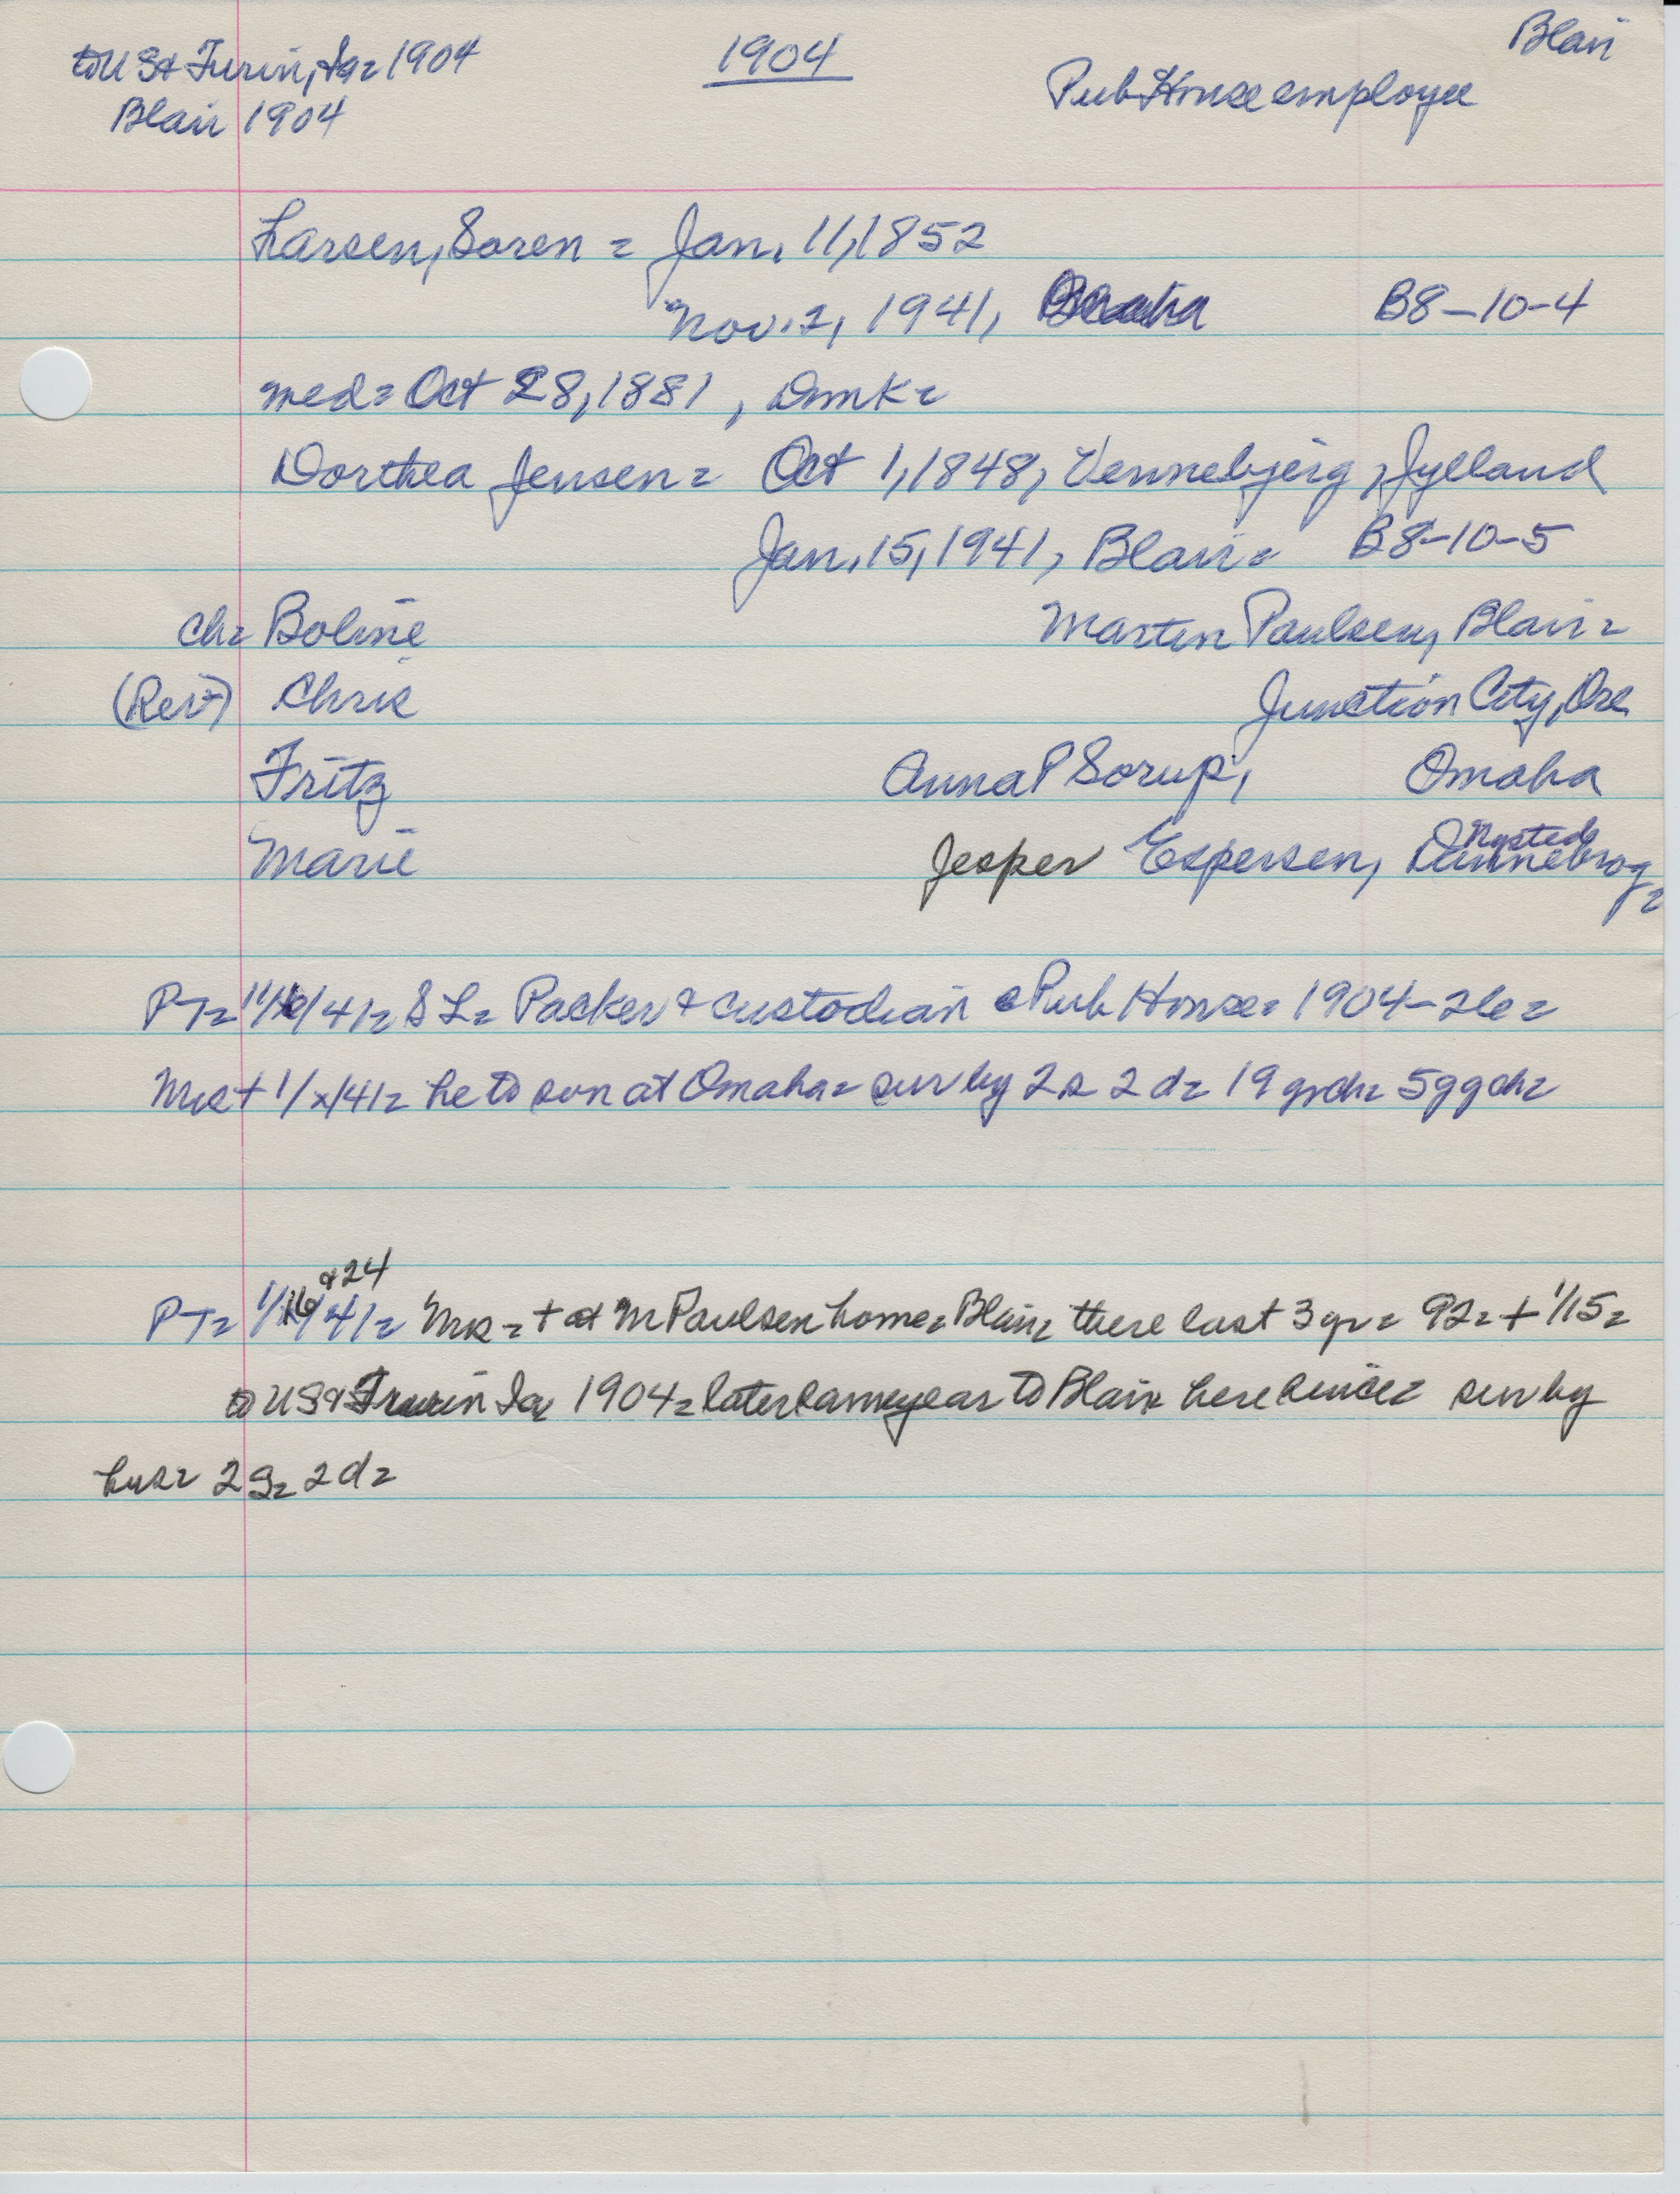 to US & Turin, Ia = 1904
Blair 1904
1904
Blair
Pub House employee
Larsen, Soren = Jan. 11, 1852
Nov. 2, 1941, Omaha B8-10-4
med = Oct 28, 1881, Dmk =
Dorthea Jensen = Oct 1, 1848, Vennebjerg, Jylland
Jan. 15, 1941, Blair = B8-10-5
Ch = Boline Martin Paulsen, Blair =
(Rev) Chris Junction City, Ore
Fritz Anna P Sorup, Omaha
Marie Jesper Espersen, Dannebrog =
Nysted
PT = 11/6/41 = S L = Packer & custodian @ Pub House = 1904-26 =
Mrs + 1/x/41 = he to son at Omaha = sur by 2 s 2 d = 19 grch = 5 ggch =
& 24
PT = 1/16/41 = Mrs = + at M Paulsen home = Blair = there last 3 yr = 92 = + 1/15 =
to US & Turin Ia 1904 = later same year to Blair here since = sur by
hus = 2 s = 2 d =